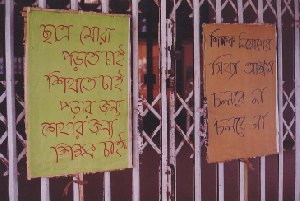 ছাত্র মোরা
পড়তে চাই
শিখতে চাই
পড়ার জন্য
শেখার জন্য
শিক্ষক চাই
শিক্ষক নিয়োগের
মিথ্যা আশ্বাস
চলবে না
চলবে না